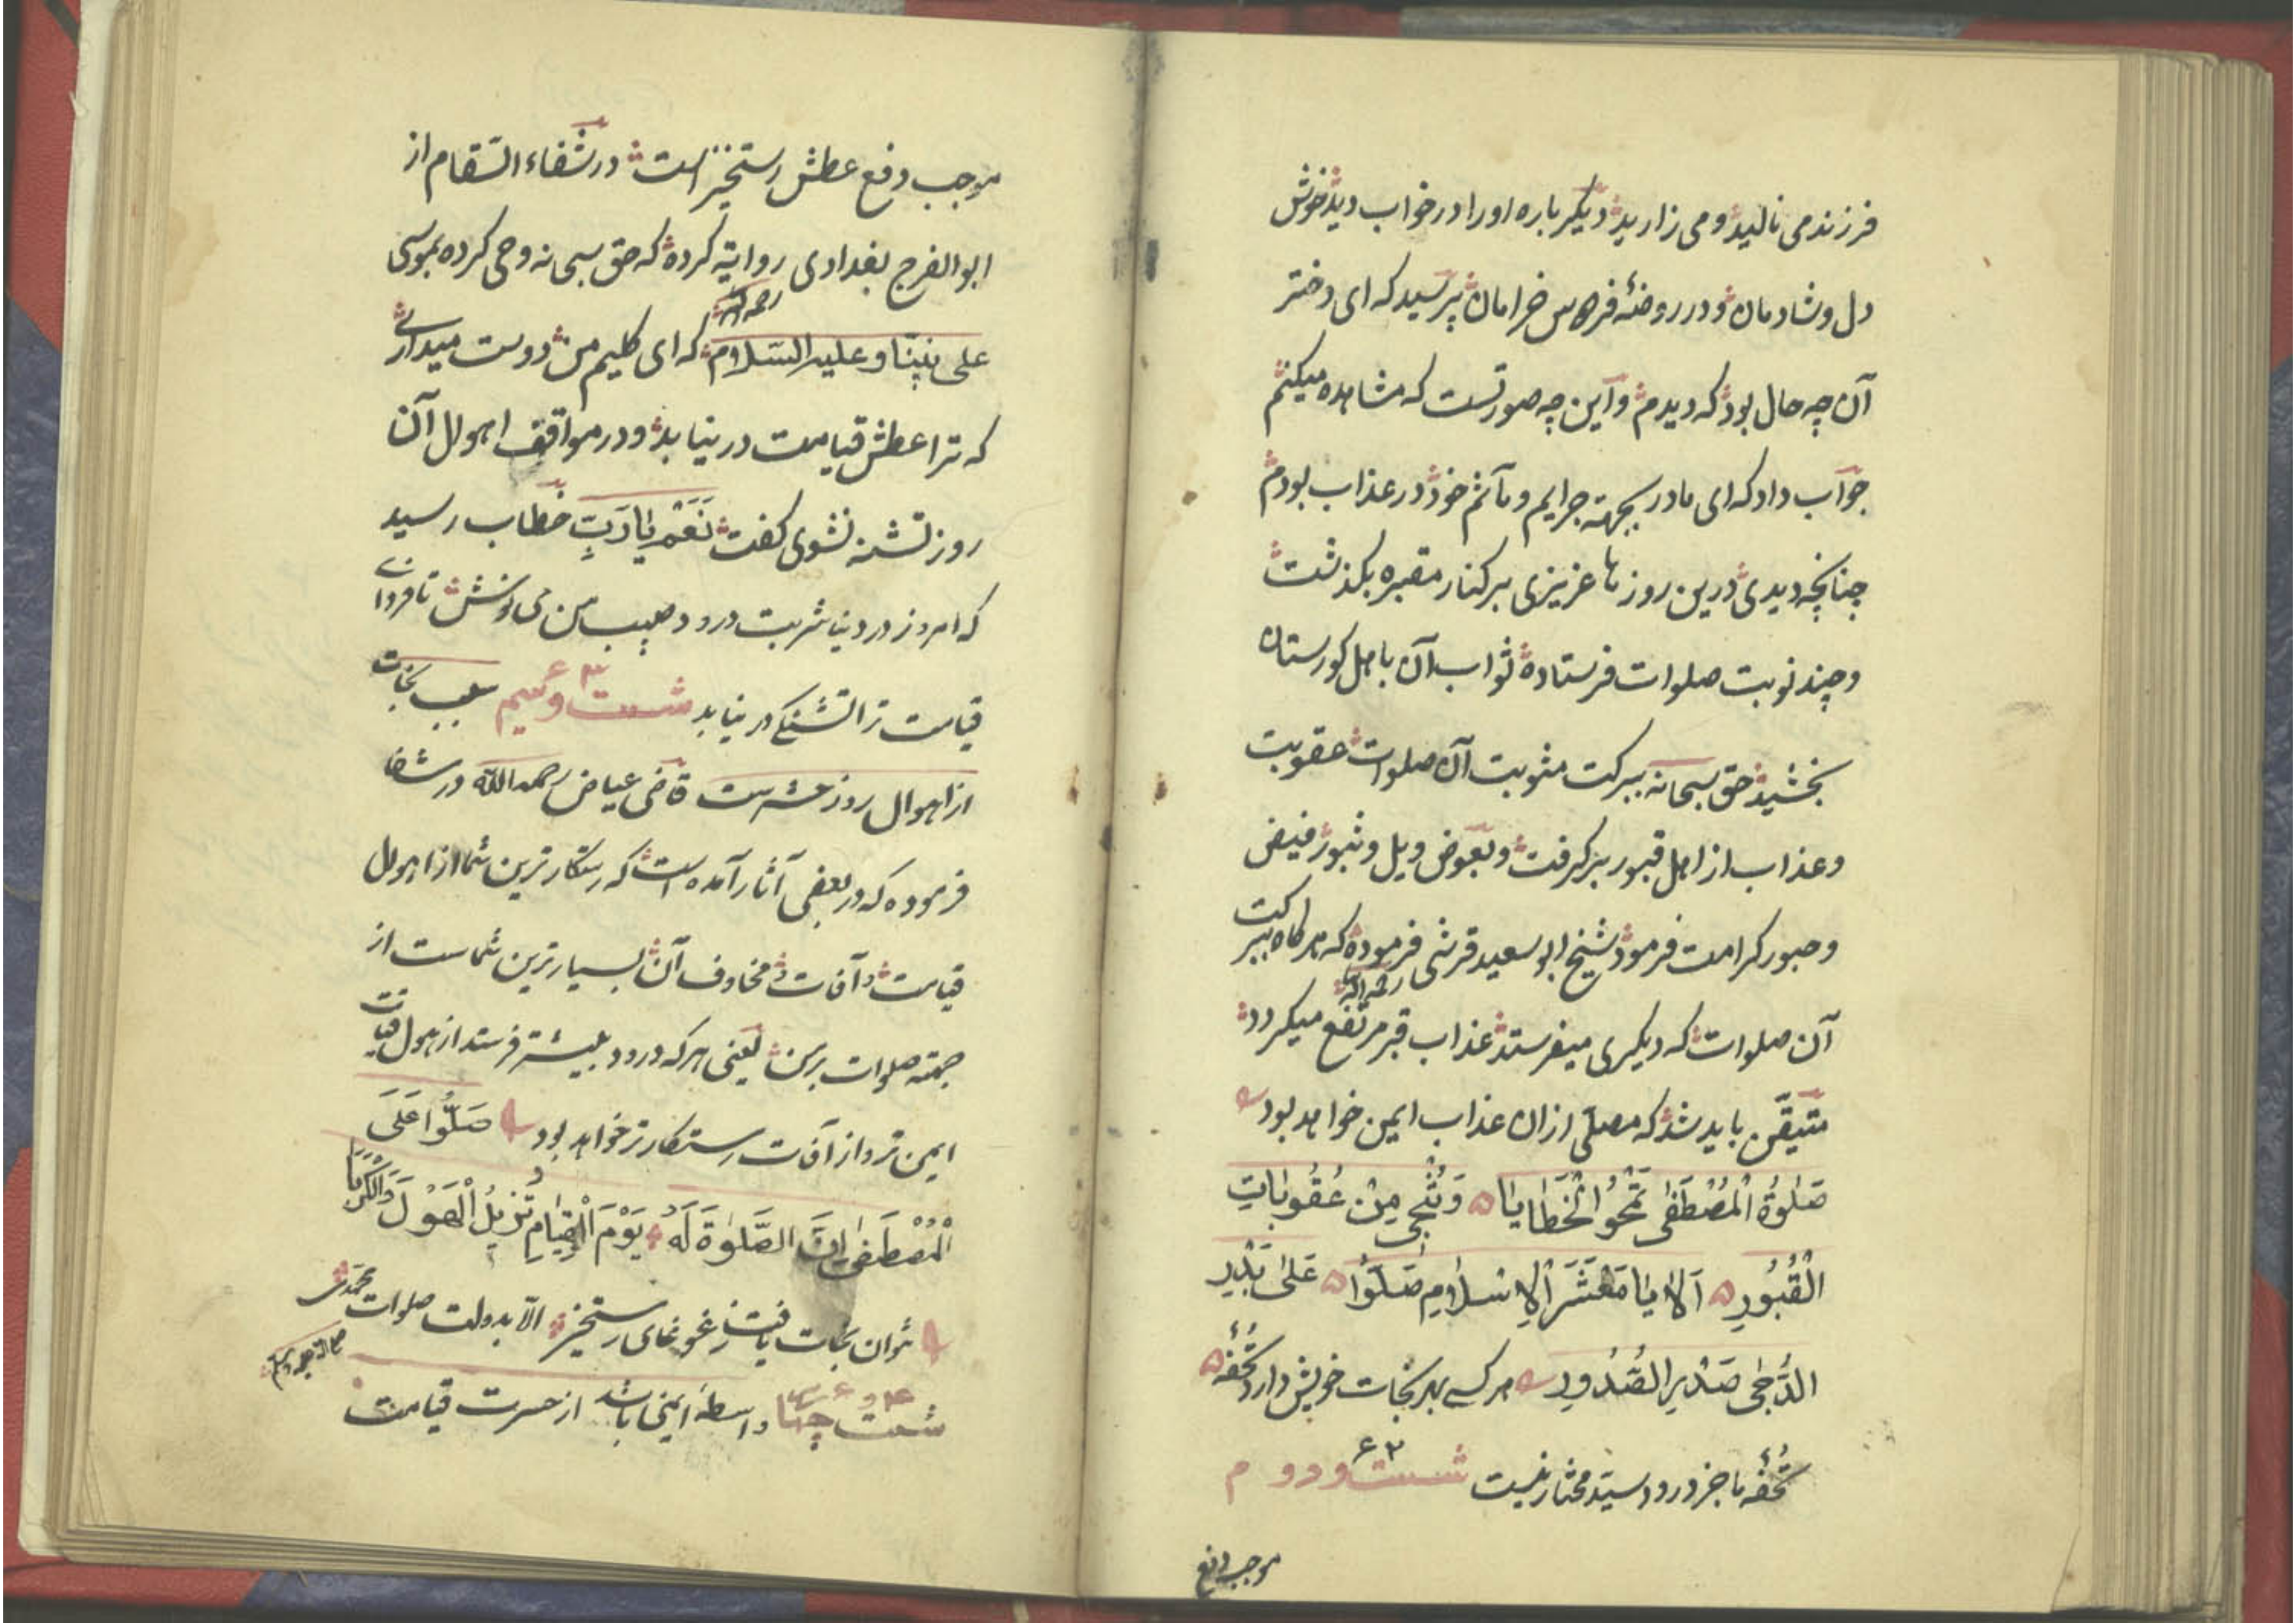 فرزند می نالید و می زارید دیگر باره او را در خواب دید خوش
دل و شادمان و در روضۀ فردوس خرامان پرسید که ای دختر
آن چه حال بود که دیدم و این چه صورتست که مشاهده میکنم
جواب داد که ای مادر بجهة جرایم و مآثم خود در عذاب بودم
چنانچه دیدی درین روزها عزیزی بر کنار مقبره بگذشت
و چند نوبت صلوات فرستاده ثواب آن باهل کورستان
بخشید حق سبحانه ببرکت مثوبت آن صلوات عقوبت
و عذاب از اهل قبور برگرفت و بعوض ویل و ثبور فیض
و حبور کرامت فرمود شیخ ابو سعید قرشی فرموده که هرگاه ببرکت
رحمه الله
آن صلوات که دیگری میفرستد عذاب قبر مرتفع میگردد
متیقّن باید شد که مصلّی ازان عذاب ایمن خواهد بود
صَلٰوةُ الْمُصْطَفٰی تَمْحُو الْخَطَایَا وَتُنْجِی مِنْ عُقُوبَاتِ
الْقُبُورِ اَلَا یَا مَعْشَرَ الْاِسْلَامِ صَلُّوا عَلٰی بَدْرِ
الدُّجٰی صَدْرِ الصُّدُورِ هر کسی بهر نجات خویش دارد تحفۀ
تحفۀ ما جز درود سیّد مختار نیست شست و دوم ۶۲
موجب دفع
موجب دفع عطش رستخیز است در شفاء السّقام از
ابو الفرج بغدادی روایة کرده که حق سبحانه وحی کرده بموسی
رحمه الله
علی نبیّنا و علیه السّلام که ای کلیم من دوست میداری
که ترا عطش قیامت در نیابد و در مواقف اهوال آن
روز تشنه نشوی گفت نَعَمْ یَا رَبِّ خطاب رسید
که امروز در دنیا شربت درود حبیب من می نوش تا فردای
قیامت ترا تشنگی در نیابد شست و سیم ۶۳ سبب نجات
از اهوال روز حشرست قاضی عیاض رحمه الله در شفا
فرموده که در بعضی آثار آمده است که رستگارترین شما از اهوال
قیامت و آفات و مخاوف آن بسیارترین شماست از
جهة صلوات بر من یعنی هر که درود بیشتر فرستد از هول قیامت
ایمن تر و از آفات رستگارتر خواهد بود صَلُّوا عَلَی
الْمُصْطَفٰی اِنَّ الصَّلٰوةَ لَهُ یَوْمَ الْقِیَامِ تُزِیلُ الْهَوْلَ وَالْکُرَبَا
نتوان نجات یافت ز غوغای رستخیز الا بدولت صلوات محمّدی
شست و چهار ۶۴ واسطۀ ایمنی باشد از حسرت قیامت